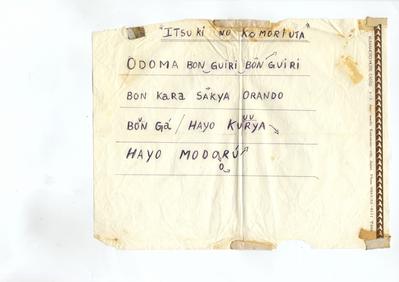 "ITSUKI NO KOMORIUTA"
ODOMA BON GUIRI BON GUIRI
BON KARA SAKYA ORANDO
BON GÁ / HAYO KURYA
HAYO MODORÚ